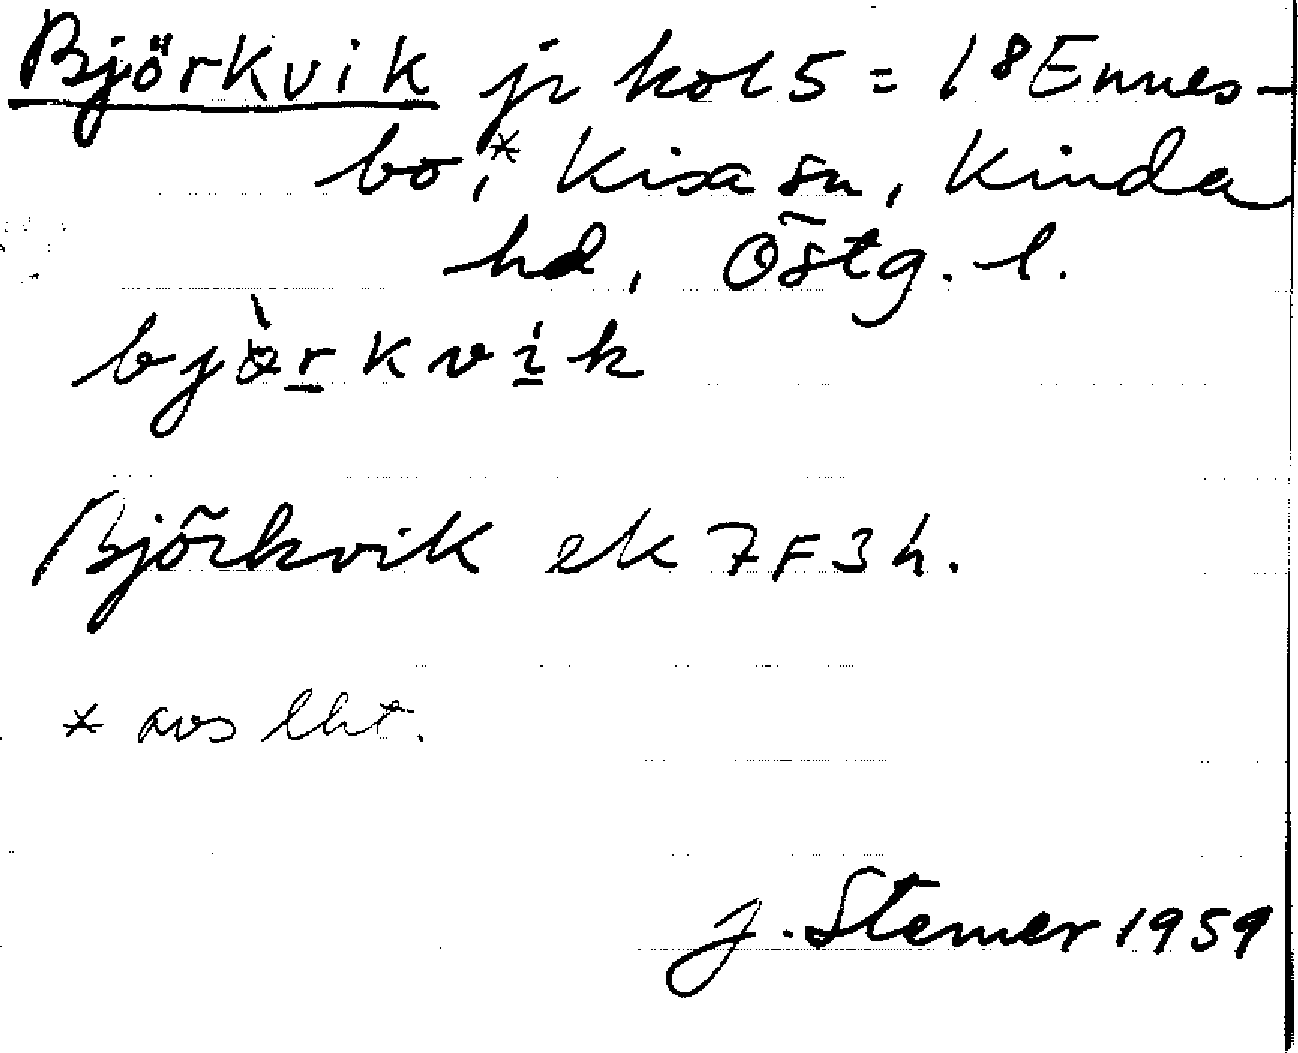 Björkvik jr kol 5 = 1⁸ Ennes-
bo,* Kisa sn, Kinda
hd, Östg. l.
bjö̀rkvik
Björkvik ek 7F3h.
* avs lht.
J. Stemer 1959